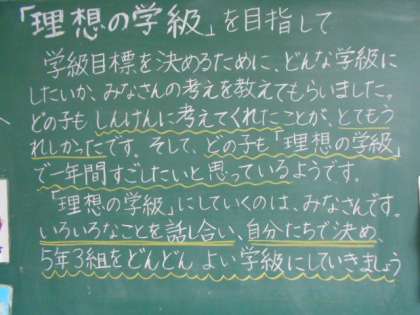 「理想の学級」を目指して
学級目標を決めるために、どんな学級に
したいか、みなさんの考えを教えてもらいました。
どの子もしんけんに考えてくれたことが、とてもう
れしかったです。そして、どの子も「理想の学級」
で一年間すごしたいと思っているようです。
「理想の学級」にしていくのは、みなさんです。
いろいろなことを話し合い、自分たちで決め、
5年3組をどんどん よい学級にしていきましょう